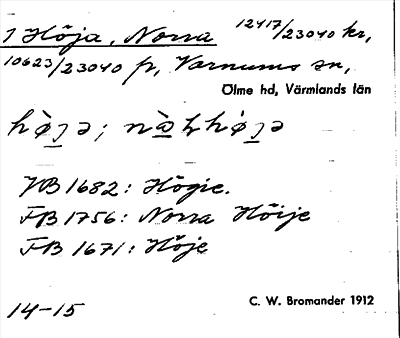 1 Höja, Norra 12417/23040 kr,
10623/23040 fr, Varnums sn,
Ölme hd, Värmlands län
VB 1682: Högie.
FB 1756: Norra Höije
FB 1671: Höje
14-15
C. W. Bromander 1912